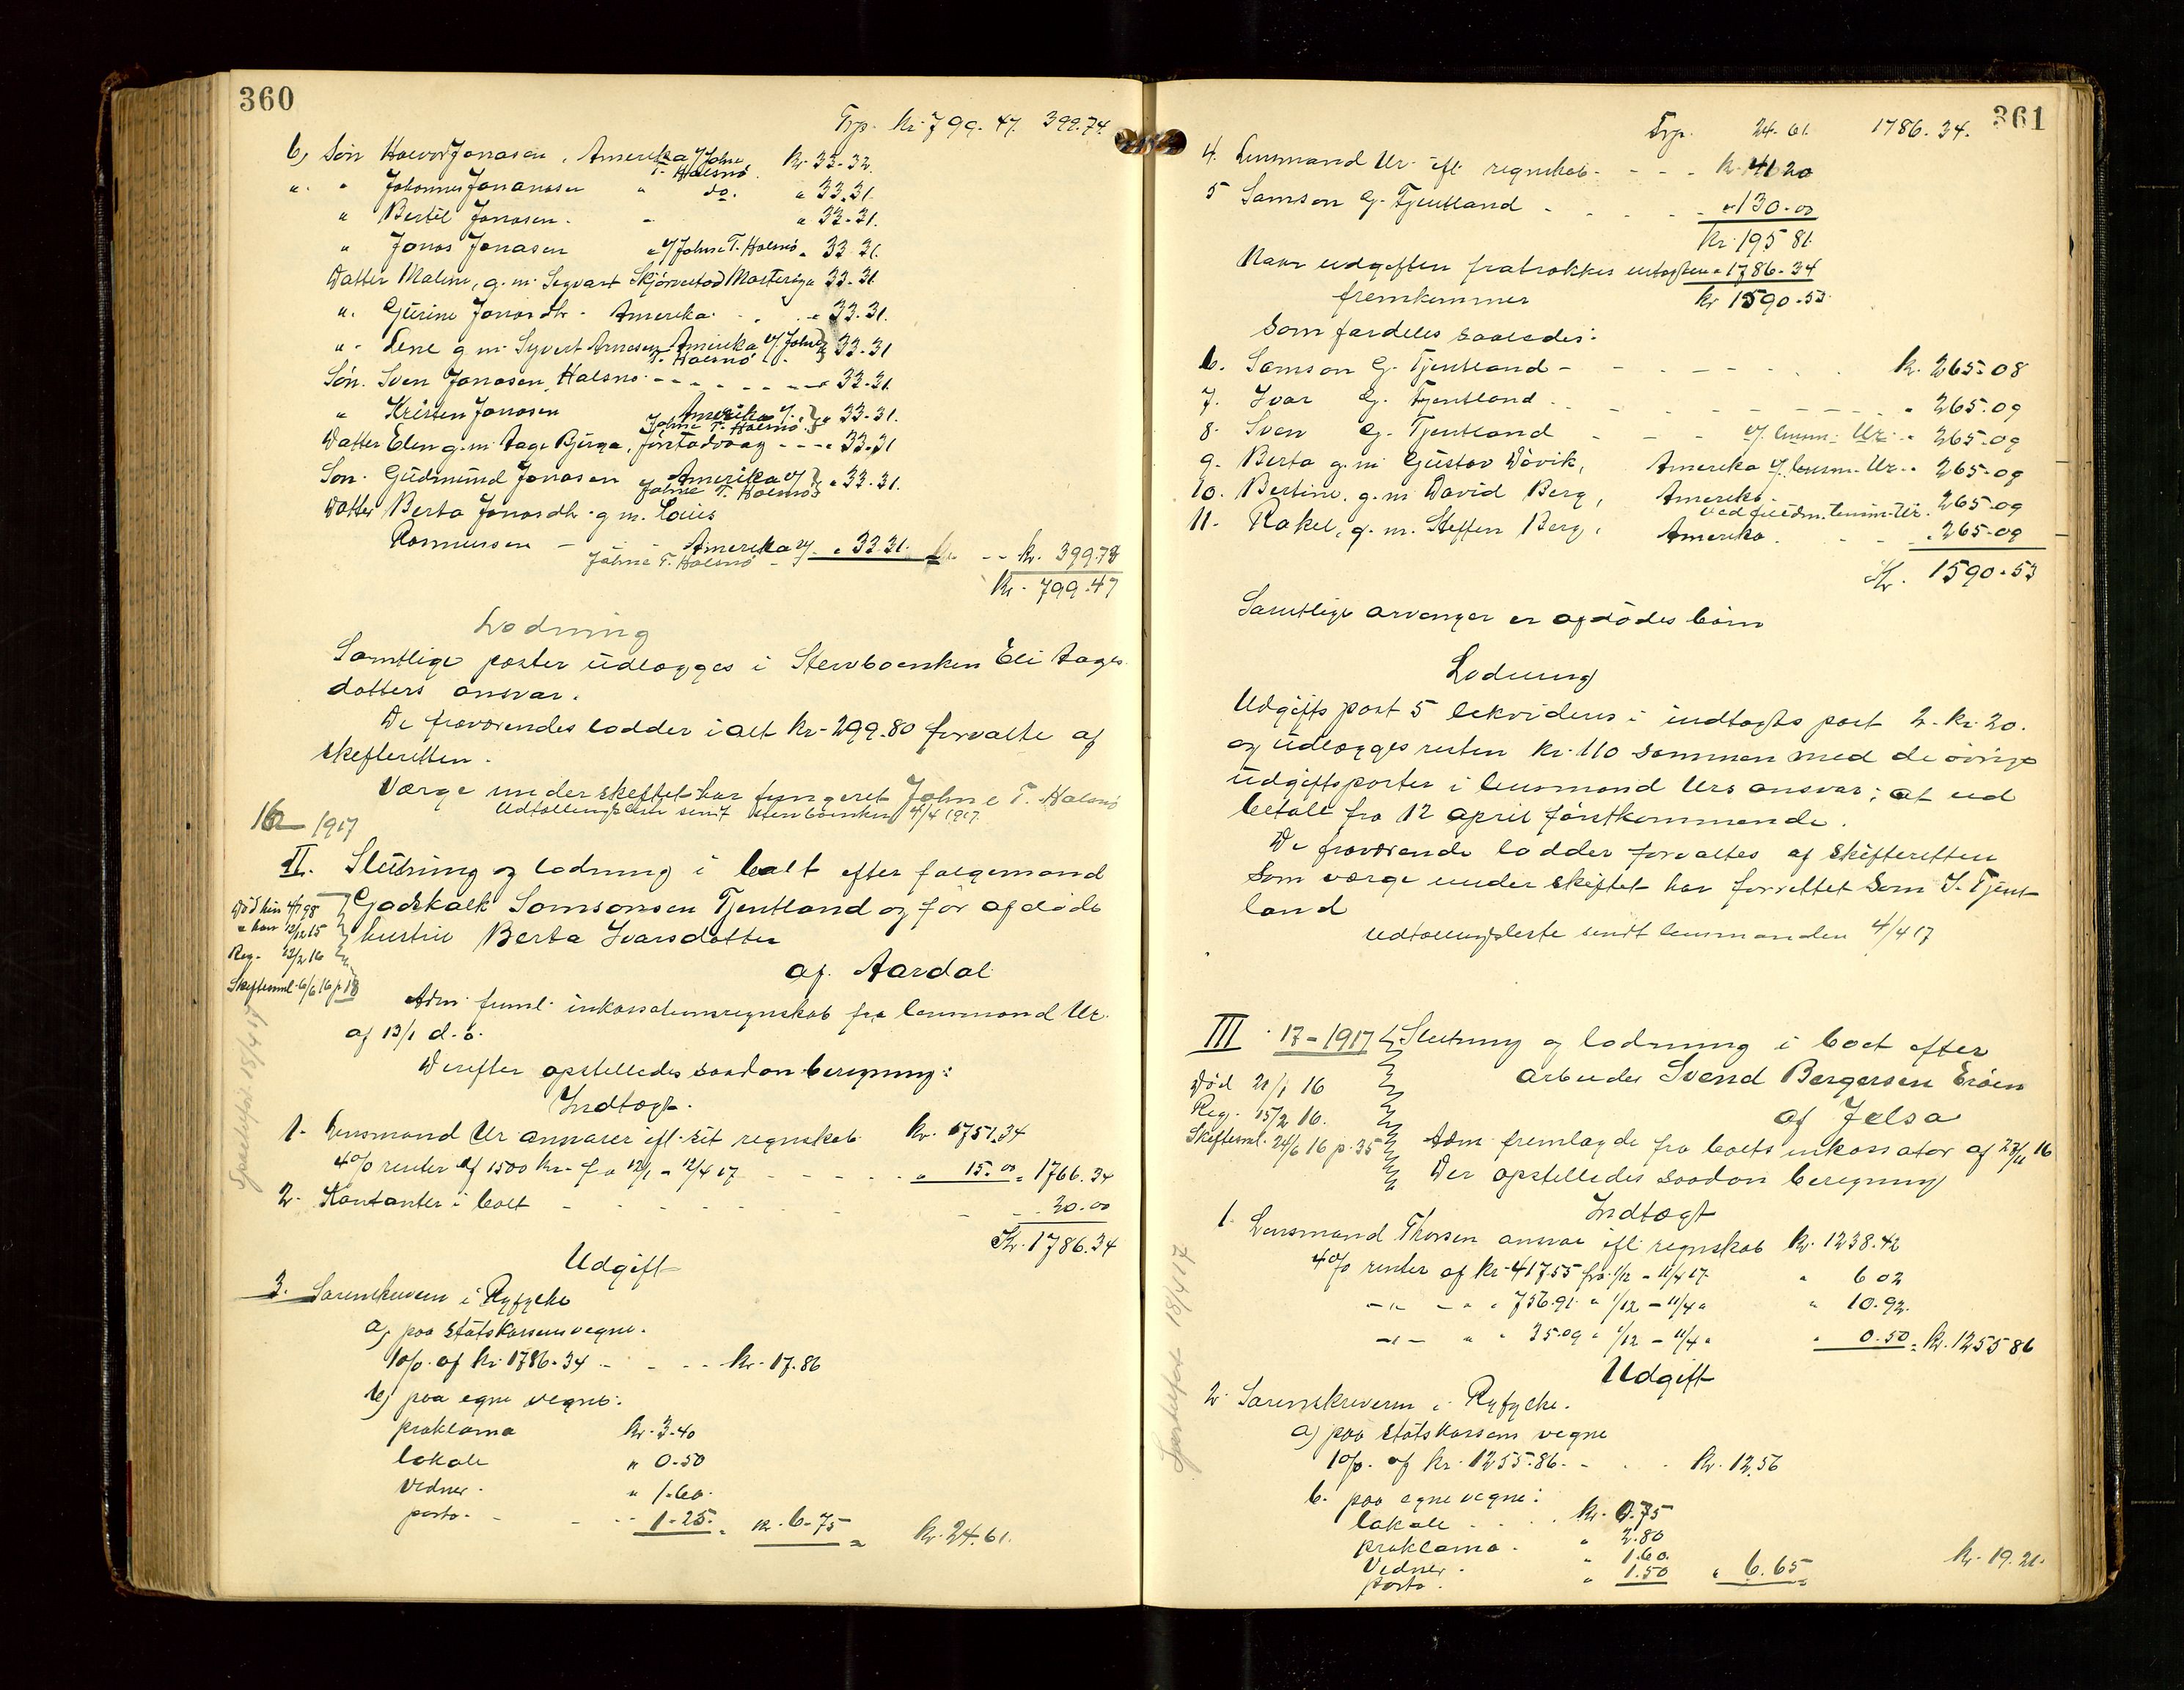 360
Trp. kr. 799.47. 399.74.
6, Søn Haevor Jonasen, Amerika v/ Johne T. Halsnø. kr. 33.32.
" " Johannes Jonanasen " do. " 33.31.
" Bertil Jonasen. - " 33.31.
" Jonas Jonasen " v/ Johne T. Halsnø. 33.31.
Datter Maline, g.m. Segvart Skjørvestad Mosterøy " 33.31
". Gurine Jonasdtr. Amerika. " 33.31.
". Lene g m. Syvert Arnesen Amerika v/ Johne T. Halsnø " 33.31
Søn. Sven Jonasen, Halsnø - - - - - " 33.31.
" Kristen Jonasen Amerika v/. Johne T. Halsnø. " 33.31.
Datter Elen g.m. Aage Bjerga, - - - " 33.31
Søn. Gudmund Jonasen Amerika v/ Johne T. Halsnø " 33.31.
Datter Berta Jonasdtr. g m. Louis
Rasmussen - - Amerika v/ Johne T. Halsnø - " 33.31. - - kr. 399.73
Kr. 799.47
Lodning
Samtlige poster udlægges i Stervboensken Eli Aages
datters ansvar.
De fraværendes lodder i alt kr. 299.80 forvalte af
skifteretten.
Værge under skiftet har fungeret Johne T. Halsnø
Udtællingsliste sendt 4/4 1917.
16 - 1917
II. Slutning og lodning i boet efter folgemand
Død hun 4/7 98 Godskalk Samsonsen Tjentland og før afdøde
" han 12/12 15 hustru Berta Ivarsdatter
Reg. 12/2 16
af. Aardal
Skiftesaml. 6/6 16 p 18
Adm. freml. inkassationsregnskab fra lensmand Ur.
af 13/1 d. å.
Derefter opstilledes saadan beregning:
Indtægt.
1. Lensmand Ur ansvarer efl. sit regnskab kr. 1751.34
4% renter af 1500 kr. fra 12/1 - 12/4 17 - - - - " 15.00 = 1766.34
2. Kontanter i boet - - - - - - 20.00
Kr. 1786.34
Udgift
3. Sorenskriveren i Ryfylke
a, paa statskassens vegne.
1%. af kr. 1786.34 - - - - kr. 17.86
b) paa egne vegne:
proklama kr. 3.40
lokale " 0.50
vidner. " 1.60.
porto. - - - 1.25. = kr. 6.75 = kr. 24.61.
361
Trp. 24.61. 1786.34.
4. Lensmand Ur. efl. regnskab - - - - kr. 41 20
5 Samson G. Tjentland - - - - " 130.00
Kr. 195 81.
Naar udgiften fratrækkes indtægten " 1786.34
fremkommer kr 1590.53.
som fordeles saaledes:
6. Samson G. Tjentland - - - - - - kr. 265.08
7. Ivar G. Tjentland. - - - - - - " 265.09
8. Sven G. Tjentland - - - v/ lensm. Ur. " 265.09
9. Berta g.m. Gustav Døvik, Amerika v/ lensm. Ur. " 265.09
10. Bertine. g.m David Berg, Amerika. ved lensm. Ur. 265.09
11. Rakel. g. m. Steffen Berg, Amerika. - - " 265.09
Kr. 1590.53
Samtlige arvenger er afdødes børn
Lodning
Udgifts post 5 likvideres i indtægts post 2. kr. 20.
og udlægges resten kr. 110 sammen med de øvrige
udgiftsposter i lensmand Urs ansvar; at ud
betale fra 12 april førstkommende.
De fraværende lodder forvaltes af skifteretten
Som værge under skiftet har forrettet Sam S. Tjent-
land
Udtællingsliste sendt lensmanden 4/4 17
III. 17 - 1917 Slutning og lodning i boet efter
Død 21/1 16 arbeider Svend Bergersen Erøen
Reg. 15/2 16. af Jelsa
Skiftesaml. 24/6 16 p. 35 Adm. fremlagde fra boets inkassator af 28/11 16
Der opstilledes saadan beregning
Indtægt
1. Lensmand Thorsen ansvar efl. regnskab kr. 1238.42
4% renter af kr. 417.55 fra 1/12 - 11/4 17 " 6 02
-"- - " " 756.91. " 1/12 - 11/4 " " 10.92.
-"- " " 35.09 " 1/12 - 11/4 " " 0.50 = kr. 1255 86
Udgift
2. Sorenskriveren i Ryfylke.
a) paa statskassens vegne
1%. af kr. 1255.86. - - - kr. 12.56
b. paa egne vegne:
lokale - - - kr. 0.75
proklama. " 2.80
Vidner. " 1.60.
porto. " 1.50 " 6.65 = kr. 19.21.
18/4 17
18/4 17